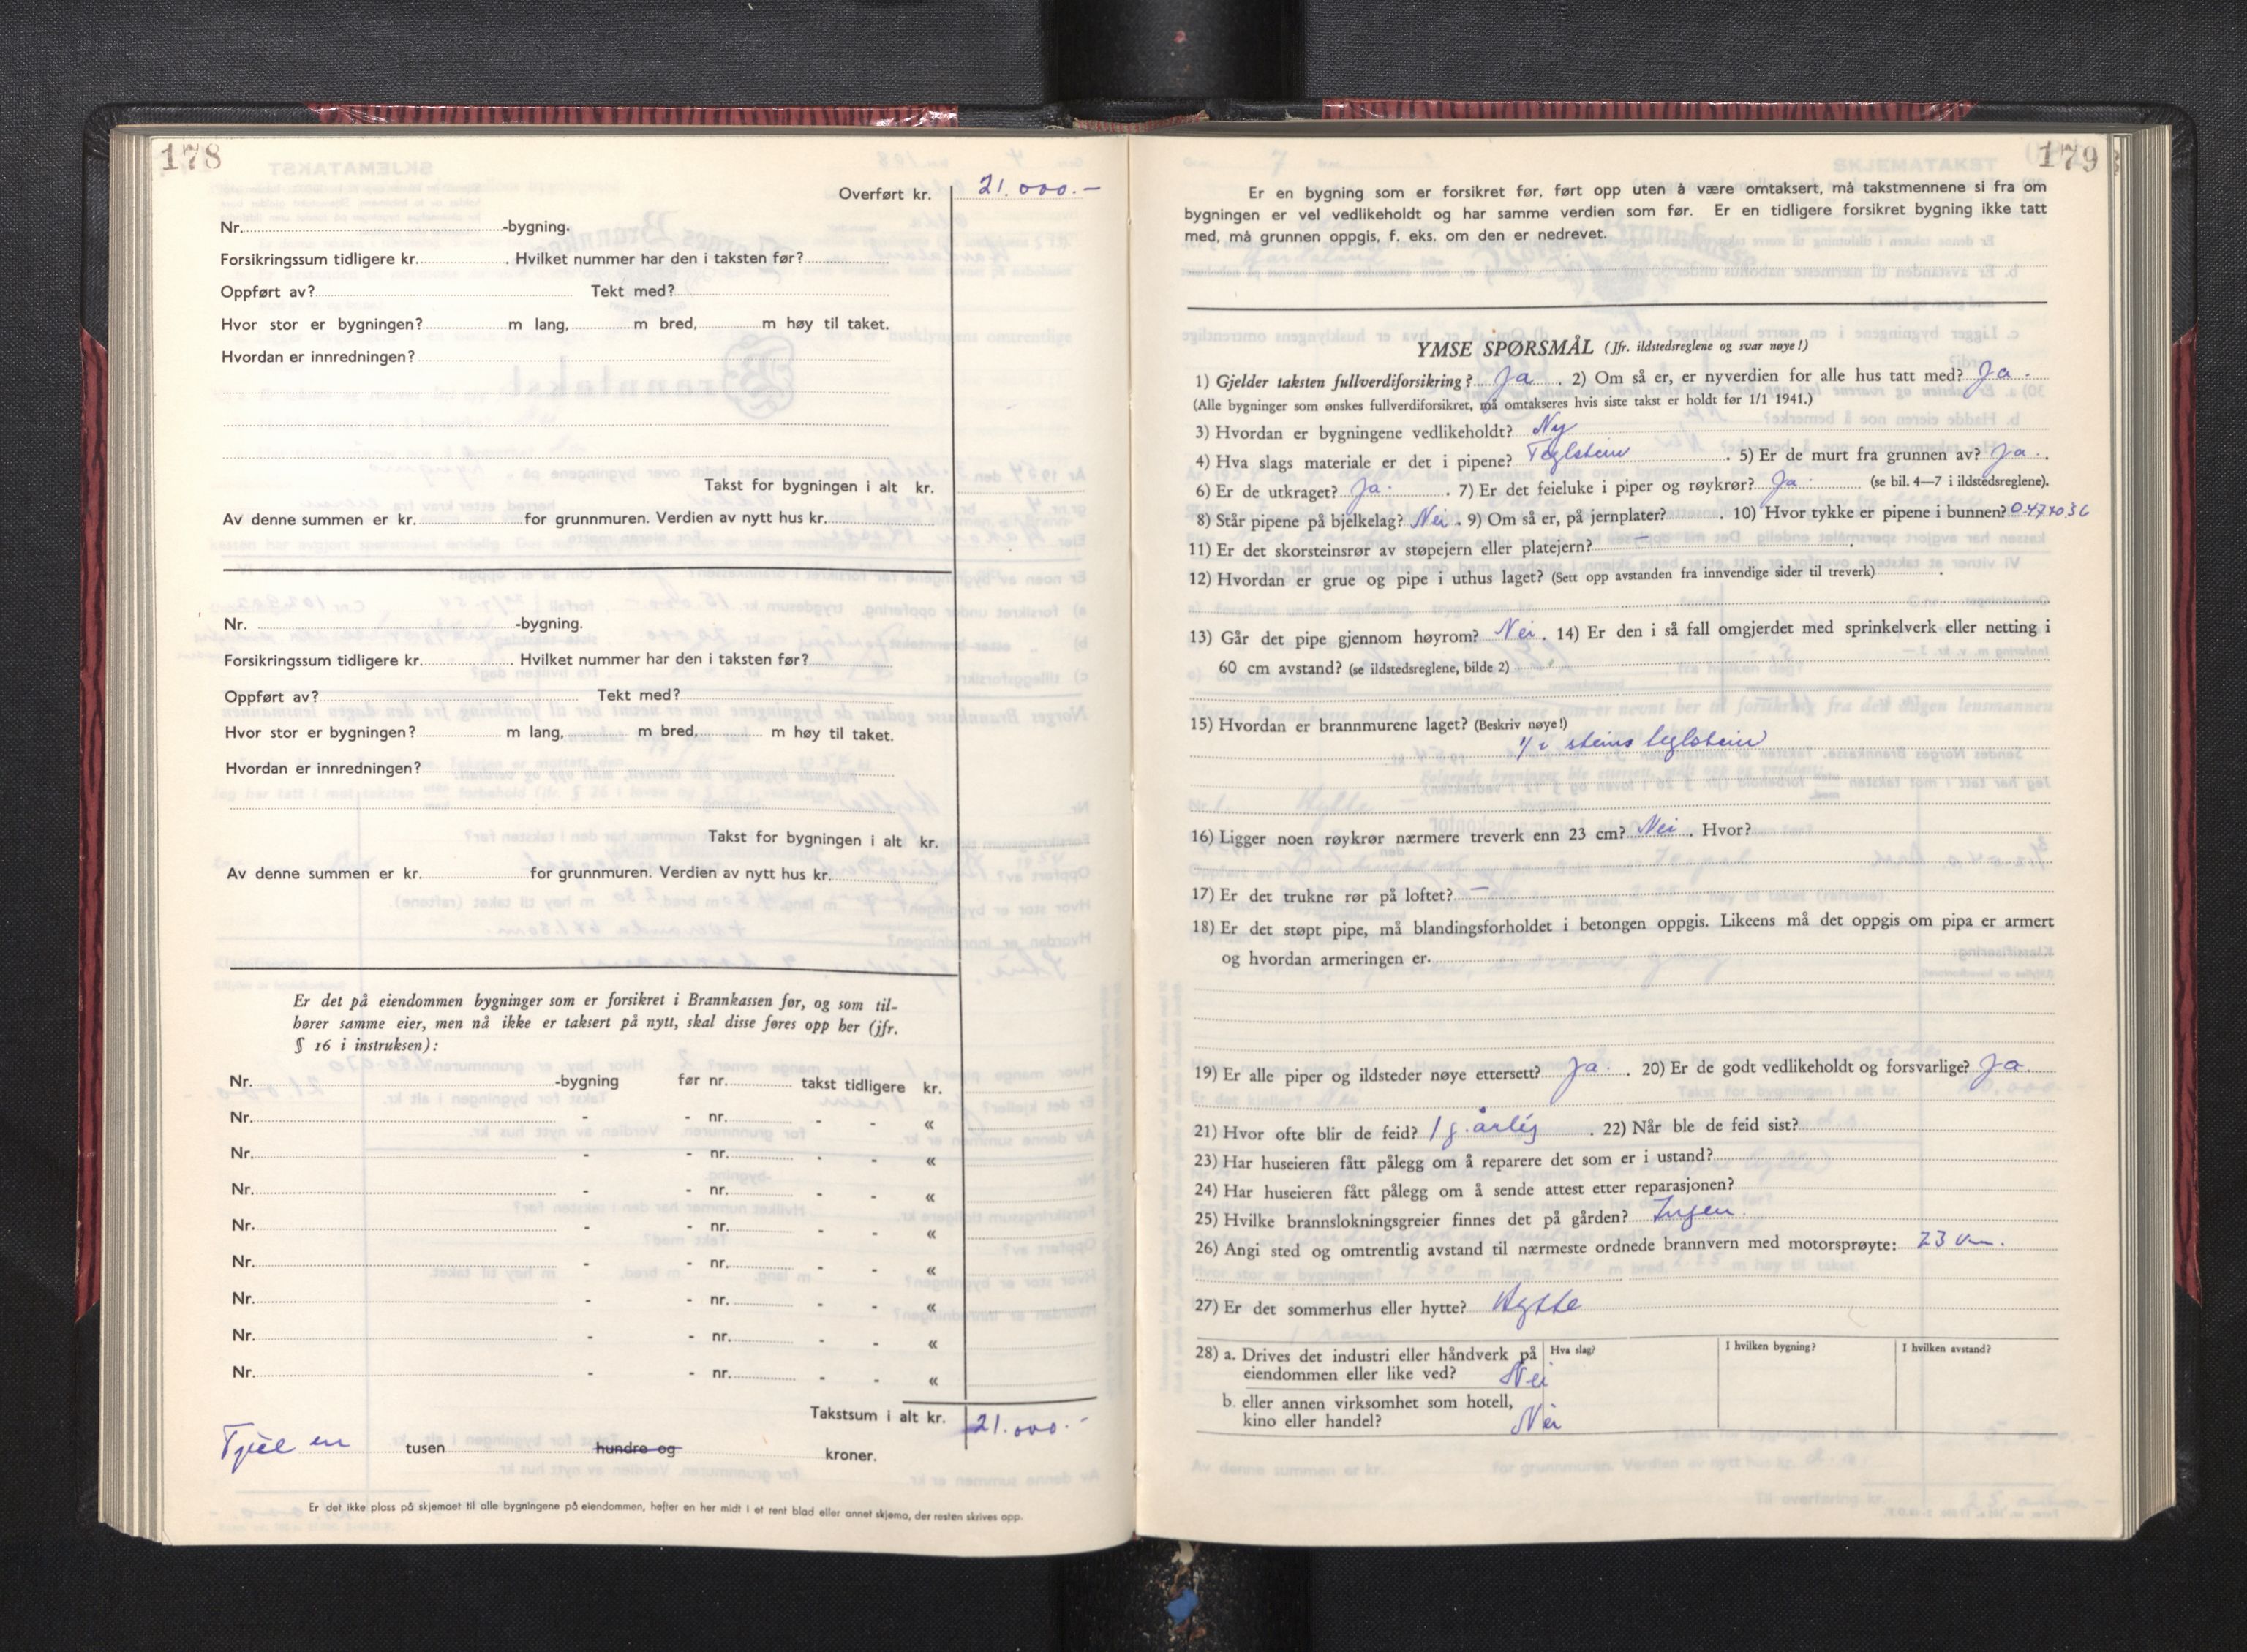 178
Overført kr. 21.000.-
Nr. -bygning.
Forsikringssum tidligere kr. . Hvilket nummer har den i taksten før?
Oppført av? Tekt med?
Hvor stor er bygningen? m lang, m bred, m høy til taket.
Hvordan er innredningen?
Takst for bygningen i alt kr.
Av denne summen er kr. for grunnmuren. Verdien av nytt hus kr.
Nr. -bygning.
Forsikringssum tidligere kr. . Hvilket nummer har den i taksten før?
Oppført av? Tekt med?
Hvor stor er bygningen? m lang, m bred, m høy til taket.
Hvordan er innredningen?
Takst for bygningen i alt kr.
Av denne summen er kr. for grunnmuren. Verdien av nytt hus kr.
Er det på eiendommen bygninger som er forsikret i Brannkassen før, og som til-
hører samme eier, men nå ikke er taksert på nytt, skal disse føres opp her (jfr.
§ 16 i instruksen):
Nr. -bygning før nr. takst tidligere kr.
Nr. - - nr. - - «
Nr. - - nr. - - «
Nr. - - nr. - - «
Nr. - - nr. - - «
Nr. - - nr. - - «
Nr. - - nr. - - «
Nr. - - nr. - - «
Nr. - - nr. - - «
Takstsum i alt kr. 21.000.-
Tjue en tusen hundre og kroner.
Er det ikke plass på skjemaet til alle bygningene på eiendommen, hefter en her midt i et rent blad eller annet skjema, der resten skrives opp.
179
Er en bygning som er forsikret før, ført opp uten å være omtaksert, må takstmennene si fra om
bygningen er vel vedlikeholdt og har samme verdien som før. Er en tidligere forsikret bygning ikke tatt
med, må grunnen oppgis, f. eks. om den er nedrevet.
YMSE SPØRSMÅL (Jfr. ildstedsreglene og svar nøye!)
1) Gjelder taksten fullverdiforsikring? Ja . 2) Om så er, er nyverdien for alle hus tatt med? Ja.
(Alle bygninger som ønskes fullverdiforsikret, må omtakseres hvis siste takst er holdt før 1/1 1941.)
3) Hvordan er bygningene vedlikeholdt? Ny
4) Hva slags materiale er det i pipene? Teglstein . 5) Er de murt fra grunnen av? Ja.
6) Er de utkraget? Ja. . 7) Er det feieluke i piper og røykrør? Ja. (se bil. 4—7 i ildstedsreglene).
8) Står pipene på bjelkelag? Nei . 9) Om så er, på jernplater? . 10) Hvor tykke er pipene i bunnen? 0.47x0.36
11) Er det skorsteinsrør av støpejern eller platejern? — .
12) Hvordan er grue og pipe i uthus laget? (Sett opp avstanden fra innvendige sider til treverk) .
13) Går det pipe gjennom høyrom? Nei . 14) Er den i så fall omgjerdet med sprinkelverk eller netting i
60 cm avstand? (se ildstedsreglene, bilde 2)
15) Hvordan er brannmurene laget? (Beskriv nøye!)
1/2 steins teglstein
16) Ligger noen røykrør nærmere treverk enn 23 cm? Nei . Hvor?
17) Er det trukne rør på loftet? —
18) Er det støpt pipe, må blandingsforholdet i betongen oppgis. Likeens må det oppgis om pipa er armert
og hvordan armeringen er.
19) Er alle piper og ildsteder nøye ettersett? Ja. . 20) Er de godt vedlikeholdt og forsvarlige? Ja
21) Hvor ofte blir de feid? 1 g. årlig . 22) Når ble de feid sist?
23) Har huseieren fått pålegg om å reparere det som er i ustand?
24) Har huseieren fått pålegg om å sende attest etter reparasjonen?
25) Hvilke brannslokningsgreier finnes det på gården? Ingen
26) Angi sted og omtrentlig avstand til nærmeste ordnede brannvern med motorsprøyte: 23 km.
27) Er det sommerhus eller hytte? Hytte
28) a. Drives det industri eller håndverk på Hva slag? I hvilken bygning? I hvilken avstand?
eiendommen eller like ved? Nei
b. eller annen virksomhet som hotell,
kino eller handel? Nei